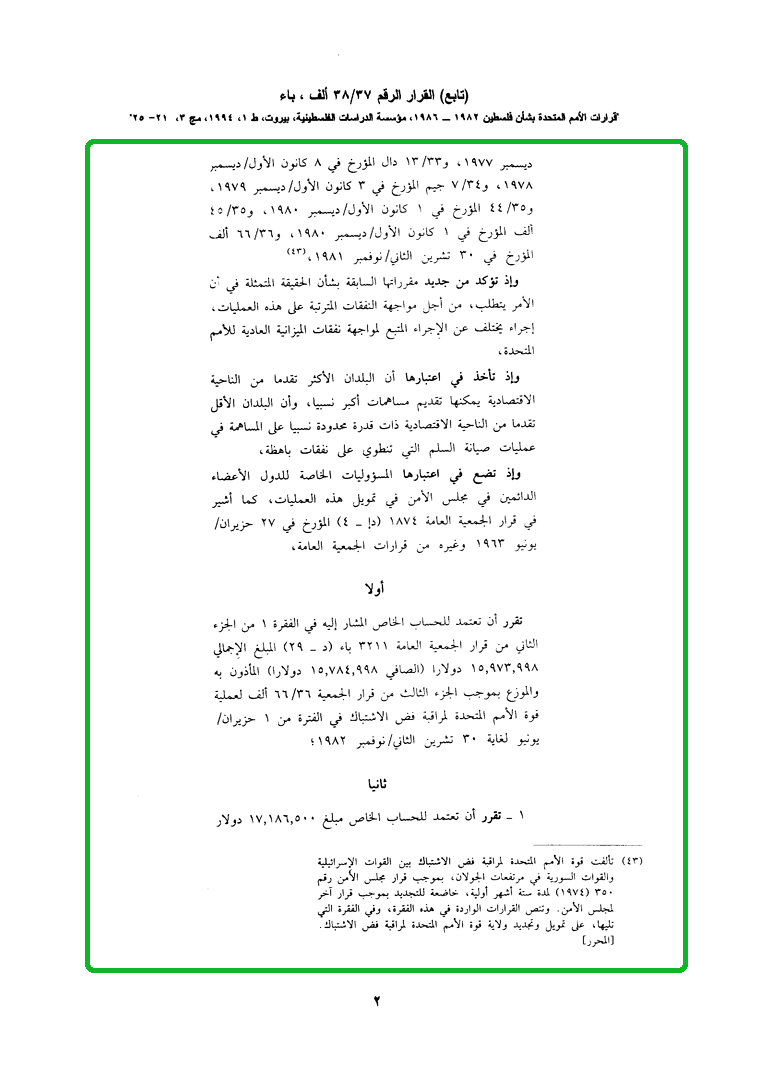 (تابع) القرار الرقم ٣٨/٣٧ ألف ، باء
"قرارات الأمم المتحدة بشأن فلسطين ١٩٨٢ ــ ١٩٨٦، مؤسسة الدراسات الفلسطينية، بيروت، ط ١، ١٩٩٤، مج ٣، ٢١- ٢٥"
ديسمبر ١٩٧٧، و١٣/٣٣ دال المؤرخ في ٨ كانون الأول/ديسمبر
١٩٧٨، و٧/٣٤ جيم المؤرخ في ٣ كانون الأول/ديسمبر ١٩٧٩،
و٤٤/٣٥ المؤرخ في ١ كانون الأول/ديسمبر ١٩٨٠، و٤٥/٣٥
ألف المؤرخ في ١ كانون الأول/ديسمبر ١٩٨٠، و٦٦/٣٦ ألف
المؤرخ في ٣٠ تشرين الثاني/نوفمبر ١٩٨١،(٤٣)
وإذ تؤكد من جديد مقرراتها السابقة بشأن الحقيقة المتمثلة في أن
الأمر يتطلب، من أجل مواجهة النفقات المترتبة على هذه العمليات،
إجراء يختلف عن الإجراء المتبع لمواجهة نفقات الميزانية العادية للأمم
المتحدة،
وإذ تأخذ في اعتبارها أن البلدان الأكثر تقدما من الناحية
الاقتصادية يمكنها تقديم مساهمات أكبر نسبيا، وأن البلدان الأقل
تقدما من الناحية الاقتصادية ذات قدرة محدودة نسبيا على المساهمة في
عمليات صيانة السلم التي تنطوي على نفقات باهظة،
وإذ تضع في اعتبارها المسؤوليات الخاصة للدول الأعضاء
الدائمين في مجلس الأمن في تمويل هذه العمليات، كما أشير
في قرار الجمعية العامة ١٨٧٤ (دإ ــ ٤) المؤرخ في ٢٧ حزيران/
يونيو ١٩٦٣ وغيره من قرارات الجمعية العامة،
أولا
تقرر أن تعتمد للحساب الخاص المشار إليه في الفقرة ١ من الجزء
الثاني من قرار الجمعية العامة ٣٢١١ باء (د ــ ٢٩) المبلغ الإجمالي
١٥,٩٧٣,٩٩٨ دولارا (الصافي ١٥,٧٨٤,٩٩٨ دولارا) المأذون به
والموزع بموجب الجزء الثالث من قرار الجمعية ٦٦/٣٦ ألف لعملية
قوة الأمم المتحدة لمراقبة فض الاشتباك في الفترة من ١ حزيران/
يونيو لغاية ٣٠ تشرين الثاني/نوفمبر ١٩٨٢؛
ثانيا
١ ــ تقرر أن تعتمد للحساب الخاص مبلغ ١٧,١٨٦,٥٠٠ دولار
(٤٣) تألفت قوة الأمم المتحدة لمراقبة فض الاشتباك بين القوات الإسرائيلية
والقوات السورية في مرتفعات الجولان، بموجب قرار مجلس الأمن رقم
٣٥٠ (١٩٧٤) لمدة ستة أشهر أولية، خاضعة للتجديد بموجب قرار آخر
لمجلس الأمن. وتنص القرارات الواردة في هذه الفقرة، وفي الفقرة التي
تليها، على تمويل وتجديد ولاية قوة الأمم المتحدة لمراقبة فض الاشتباك.
[المحرر]
٢